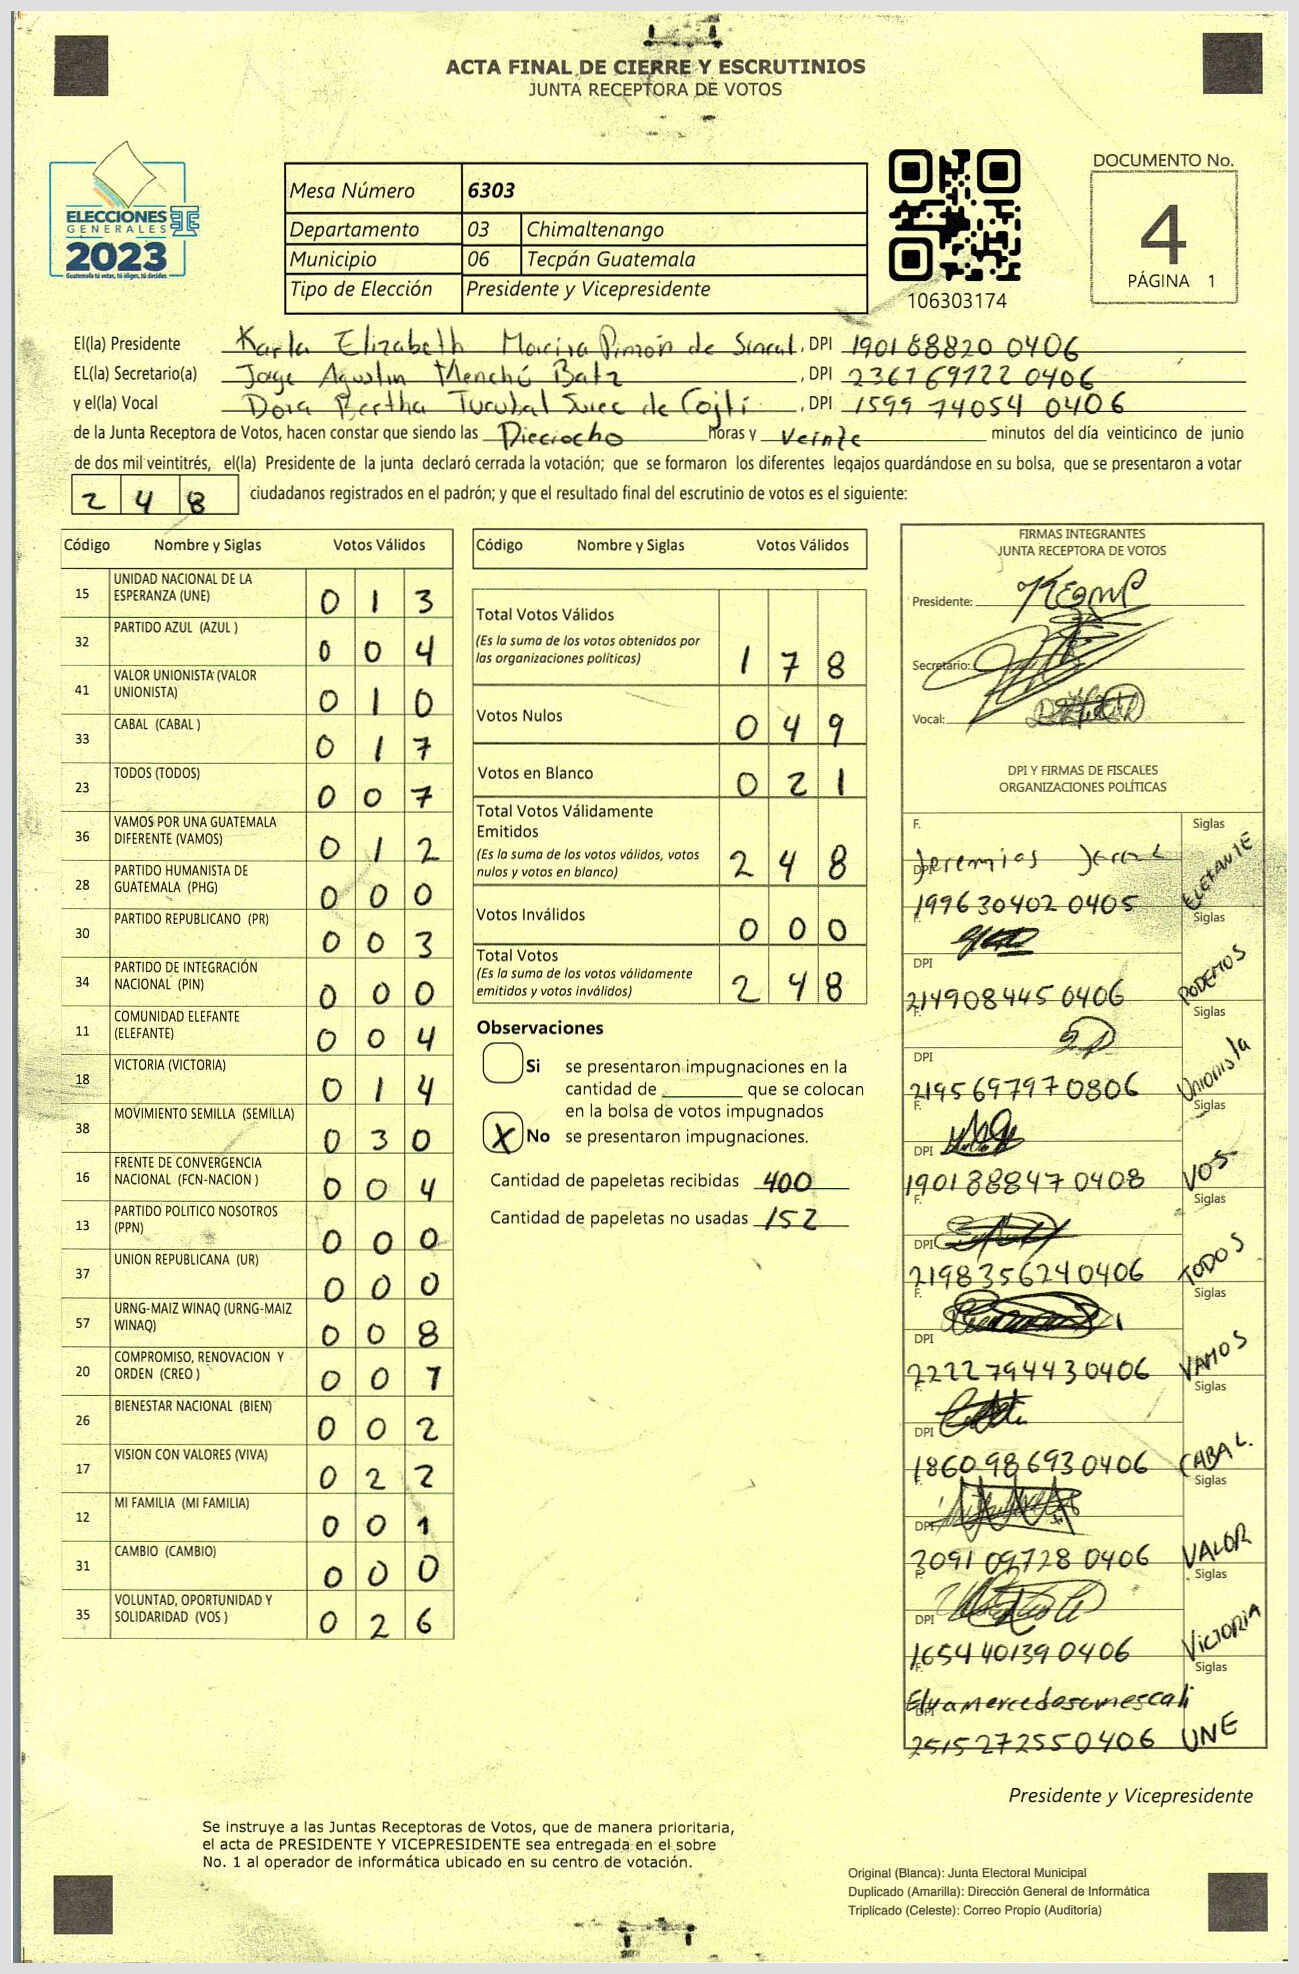 ACTA FINAL DE CIERRE Y ESCRUTINIOS
JUNTA RECEPTORA DE VOTOS
ELECCIONES
GENERALES
2023
Guatemala tú votas, tú eliges, tú decides
Mesa Número 6303
Departamento 03 Chimaltenango
Municipio 06 Tecpán Guatemala
Tipo de Elección Presidente y Vicepresidente
106303174
DOCUMENTO No.
4
PÁGINA 1
El(la) Presidente Karla Elizabeth de , DPI 190188820 0406
EL(la) Secretario(a) Jorge Agustin Menchú Batz , DPI 236769722 0406
y el(la) Vocal Dora Bertha Tucubal de Cojtí , DPI 1599 74054 0406
de la Junta Receptora de Votos, hacen constar que siendo las Dieciocho horas y veinte minutos del día veinticinco de junio
de dos mil veintitrés, el(la) Presidente de la junta declaró cerrada la votación; que se formaron los diferentes legajos quardándose en su bolsa, que se presentaron a votar
2 4 8 ciudadanos registrados en el padrón; y que el resultado final del escrutinio de votos es el siguiente:
Código Nombre y Siglas Votos Válidos
15 UNIDAD NACIONAL DE LA ESPERANZA (UNE) 0 1 3
32 PARTIDO AZUL (AZUL ) 0 0 4
41 VALOR UNIONISTA (VALOR UNIONISTA) 0 1 0
33 CABAL (CABAL ) 0 1 7
23 TODOS (TODOS) 0 0 7
36 VAMOS POR UNA GUATEMALA DIFERENTE (VAMOS) 0 1 2
28 PARTIDO HUMANISTA DE GUATEMALA (PHG) 0 0 0
30 PARTIDO REPUBLICANO (PR) 0 0 3
34 PARTIDO DE INTEGRACIÓN NACIONAL (PIN) 0 0 0
11 COMUNIDAD ELEFANTE (ELEFANTE) 0 0 4
18 VICTORIA (VICTORIA) 0 1 4
38 MOVIMIENTO SEMILLA (SEMILLA) 0 3 0
16 FRENTE DE CONVERGENCIA NACIONAL (FCN-NACION ) 0 0 4
13 PARTIDO POLITICO NOSOTROS (PPN) 0 0 0
37 UNION REPUBLICANA (UR) 0 0 0
57 URNG-MAIZ WINAQ (URNG-MAIZ WINAQ) 0 0 8
20 COMPROMISO, RENOVACION Y ORDEN (CREO ) 0 0 1
26 BIENESTAR NACIONAL (BIEN) 0 0 2
17 VISION CON VALORES (VIVA) 0 2 2
12 MI FAMILIA (MI FAMILIA) 0 0 1
31 CAMBIO (CAMBIO) 0 0 0
35 VOLUNTAD, OPORTUNIDAD Y SOLIDARIDAD (VOS ) 0 2 6
Código Nombre y Siglas Votos Válidos
Total Votos Válidos
(Es la suma de los votos obtenidos por
las organizaciones políticas) 1 7 8
Votos Nulos 0 4 9
Votos en Blanco 0 2 1
Total Votos Válidamente
Emitidos
(Es la suma de los votos válidos, votos
nulos y votos en blanco) 2 4 8
Votos Inválidos 0 0 0
Total Votos
(Es la suma de los votos válidamente
emitidos y votos inválidos) 2 4 8
Observaciones
Si se presentaron impugnaciones en la
cantidad de ________ que se colocan
en la bolsa de votos impugnados
X No se presentaron impugnaciones.
Cantidad de papeletas recibidas 400
Cantidad de papeletas no usadas 152
FIRMAS INTEGRANTES
JUNTA RECEPTORA DE VOTOS
Presidente:
Secretario:
Vocal:
DPI Y FIRMAS DE FISCALES
ORGANIZACIONES POLÍTICAS
F. Jeremias Siglas
DPI 199630402 0405 ELEFANTE
F. Siglas
DPI
214908445 0406 PODEMOS
F. Siglas
DPI
2195697970806 Unionista
F. Siglas
DPI
190188847 0408 VOS
F. Siglas
DPI
2198356240406 TODOS
F. Siglas
DPI
2222794430406 VAMOS
F. Siglas
DPI
1860986930406 CABAL.
F. Siglas
DPI
3091097280406 VALOR
F. Siglas
DPI
1654401390406 VICTORIA
F. Siglas
DPI
2515272550406 UNE
Presidente y Vicepresidente
Se instruye a las Juntas Receptoras de Votos, que de manera prioritaria,
el acta de PRESIDENTE Y VICEPRESIDENTE sea entregada en el sobre
No. 1 al operador de informática ubicado en su centro de votación.
Original (Blanca): Junta Electoral Municipal
Duplicado (Amarilla): Dirección General de Informática
Triplicado (Celeste): Correo Propio (Auditoría)